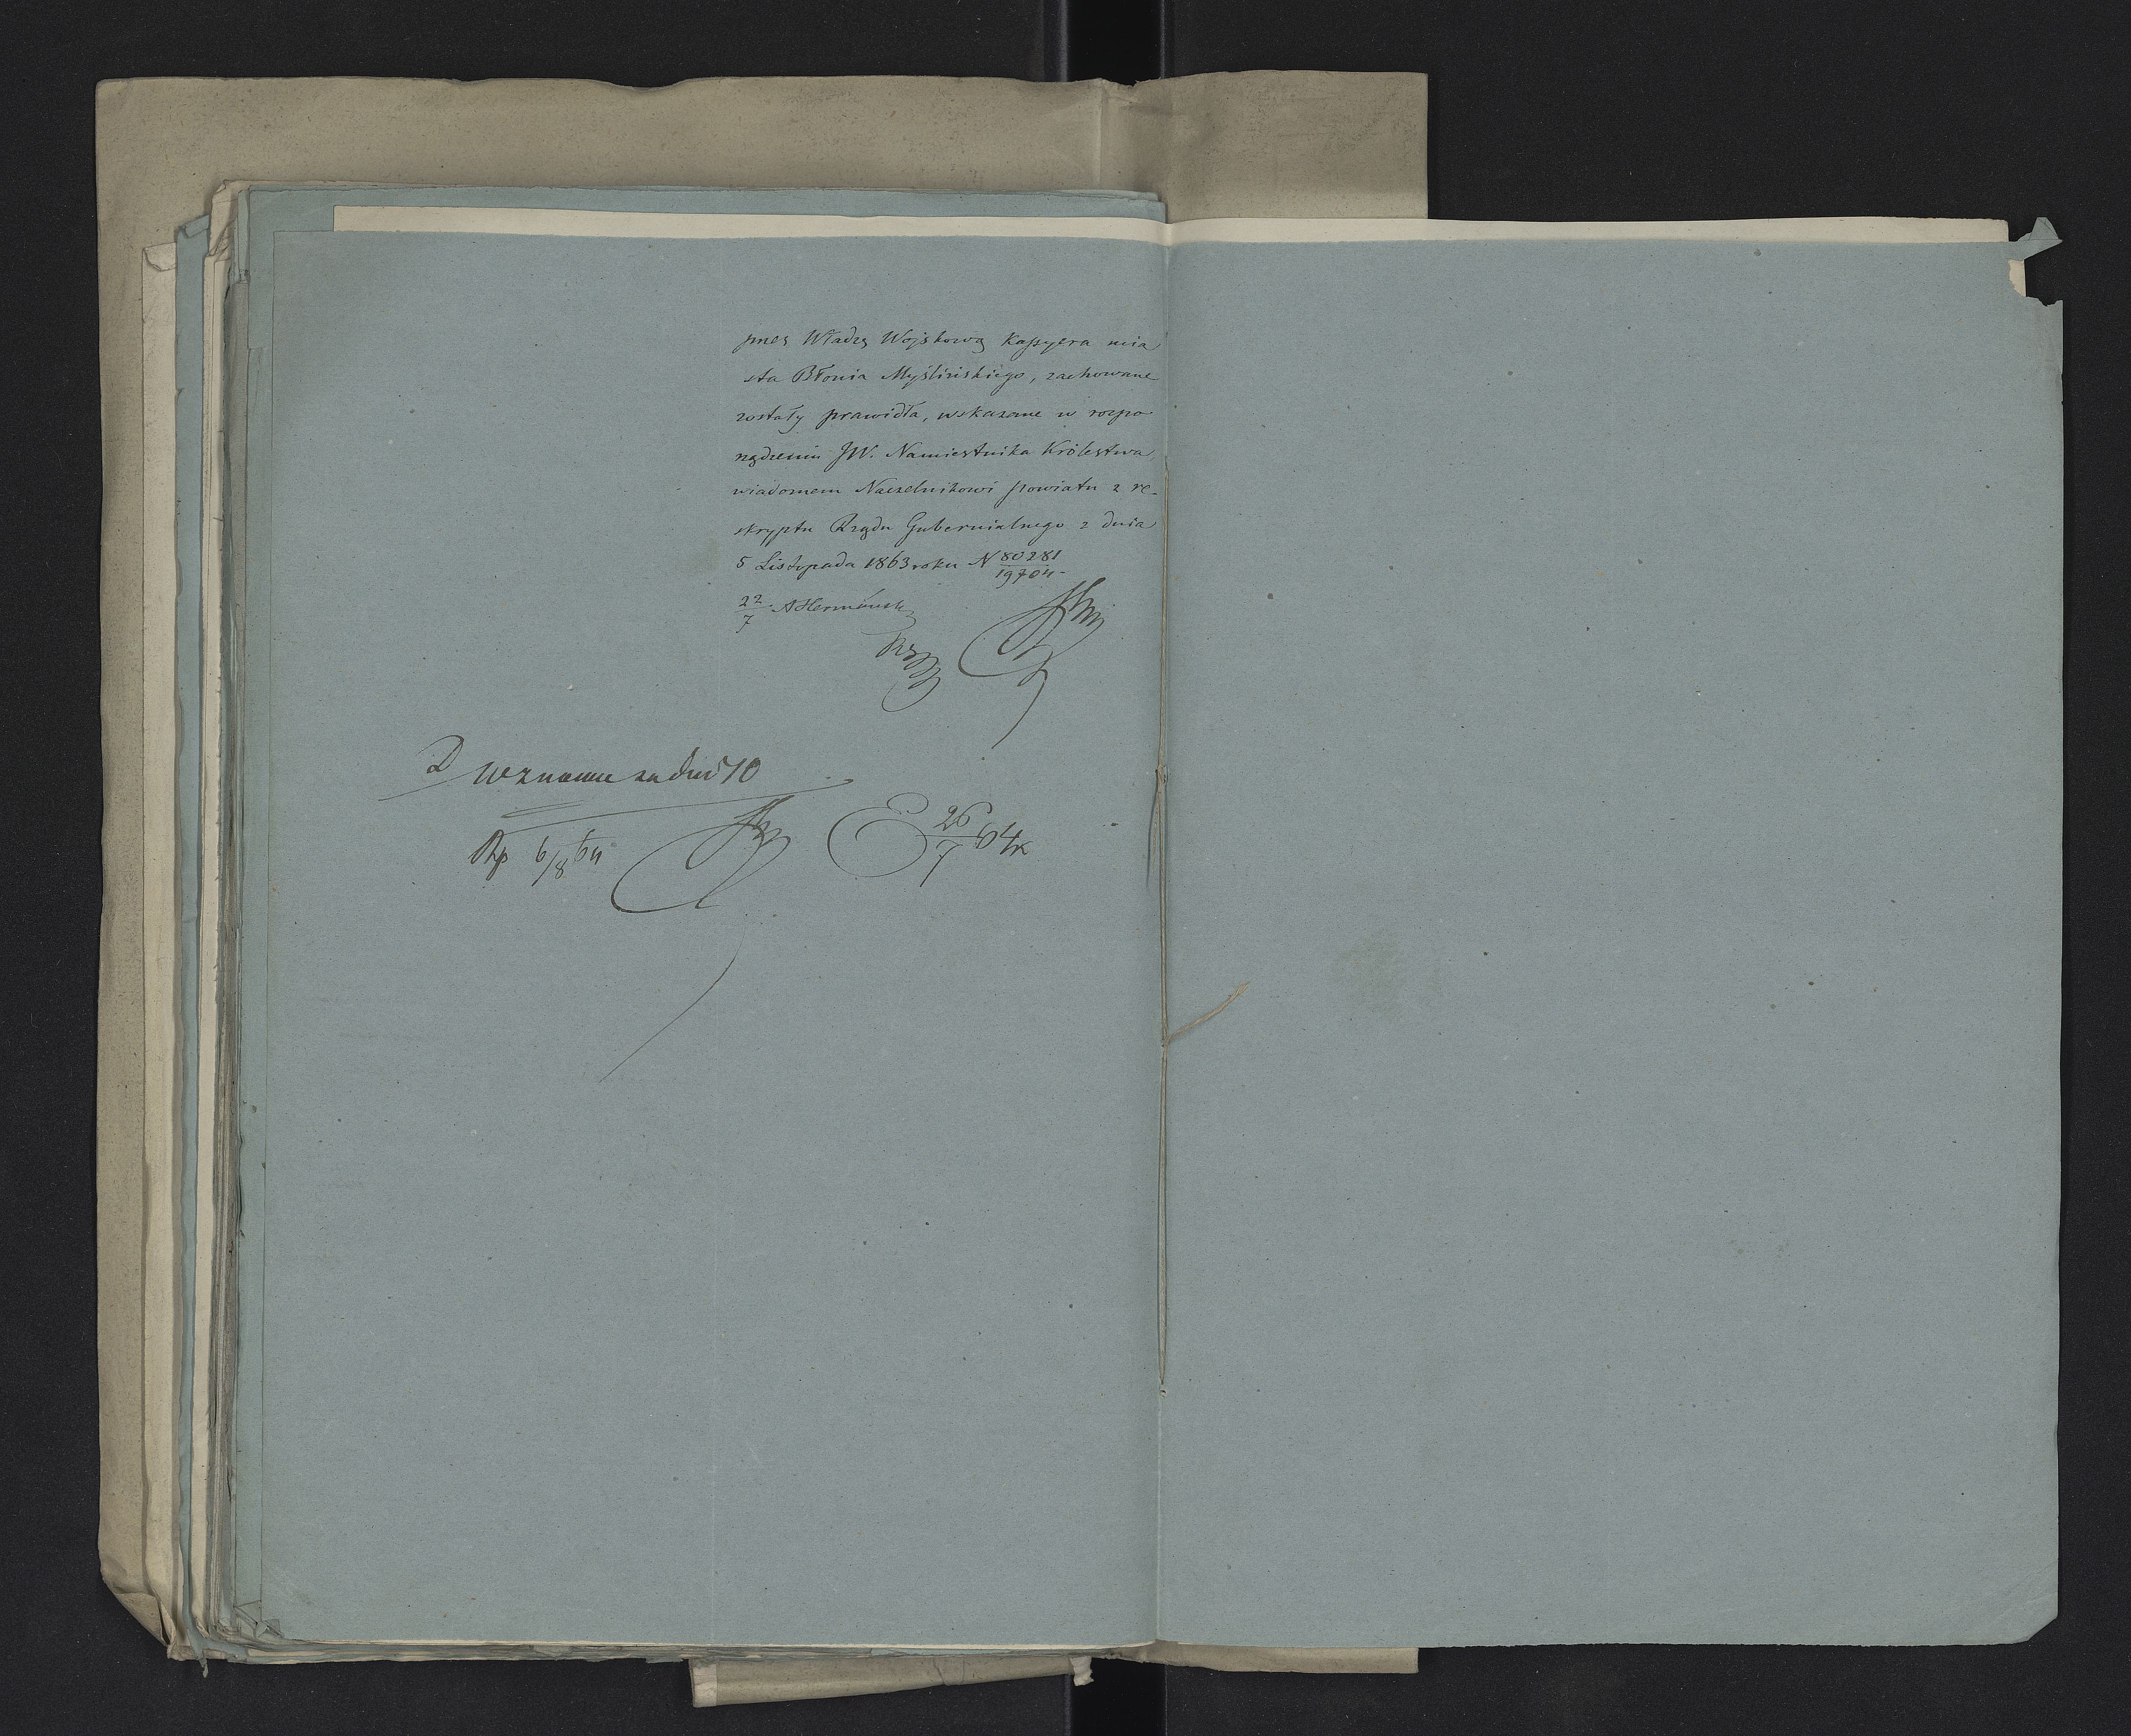 przez Władzę Wojskową Kassyera mia
sta Błonia Myślińskiego, zachowane
zostały prawidła, wskazane w rozpo
rządzeniu JW. Namiestnika Królestwa,
wiadomem Naczelnikowi Powiatu z re-
skryptu Rządu Gubernialnego z dnia
5 Listopada 1863 roku N 80281/19704.
22/7 AHermańsk
D wznowu za dni 10
26/7 64
Rp 6/8 64